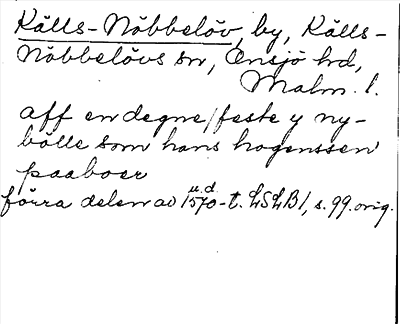 Källs-Nöbbelöv, by, Källs-
Nöbbelövs sn, Onsjö hd,
Malm. l.
aff en degne/feste y ny-
bölle som hans hogenssen
paaboer
förra delen av u.d. 1570-t. LSLB1, s. 99. orig.